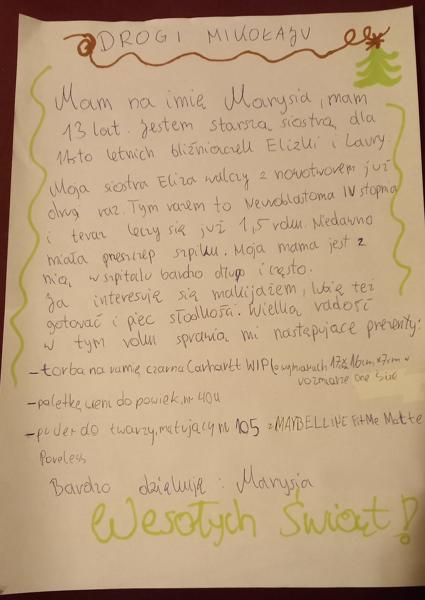 DROGI MIKOŁAJU
Mam na imię Marysia, mam
13 lat. Jestem starszą siostrą dla
11-sto letnich bliźniaczek Elizki i Laury.
Moja siostra Eliza walczy z nowotworem już
drugi raz. Tym razem to Neuroblastoma IV stopnia
i teraz leczy się już 1,5 roku. Niedawno
miała przeszczep szpiku. Moja mama jest z
nią w szpitalu bardzo długo i często.
Ja interesuję się makijażem, lubię też
gotować i piec słodkości. Wielką radość
w tym roku sprawią mi następujące prezenty:
-torba na ramię czarna Carhartt WIP (o wymiarach 17x 16cm x7cm w
rozmiarze one size
-paletkę cieni do powiek, nr 404
-puder do twarzy, matujący nr 105 z MAYBELLINE Fit Me Matte
Poreless
Bardzo dziękuję : Marysia
Wesołych Świąt!